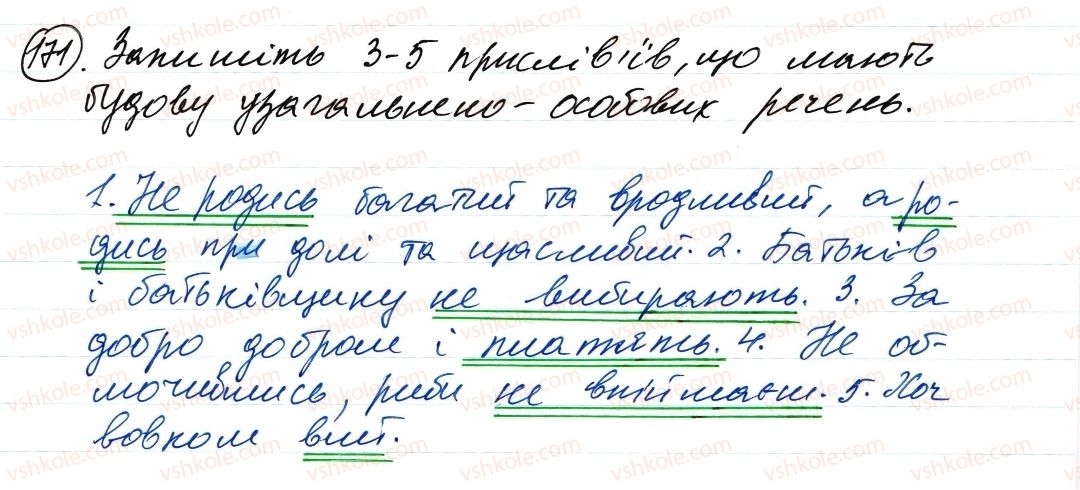 171. Запишіть 3-5 прислів'їв, що мають
будову узагальнено-особових речень.
1. Не родись багатий та вродливий, а ро-
дись при долі та щасливий. 2. Батьків
і батьківщину не вибирають. 3. За
добро добром і платять. 4. Не об-
мочившись, риби не впіймаєш. 5. Хоч
вовком вий.